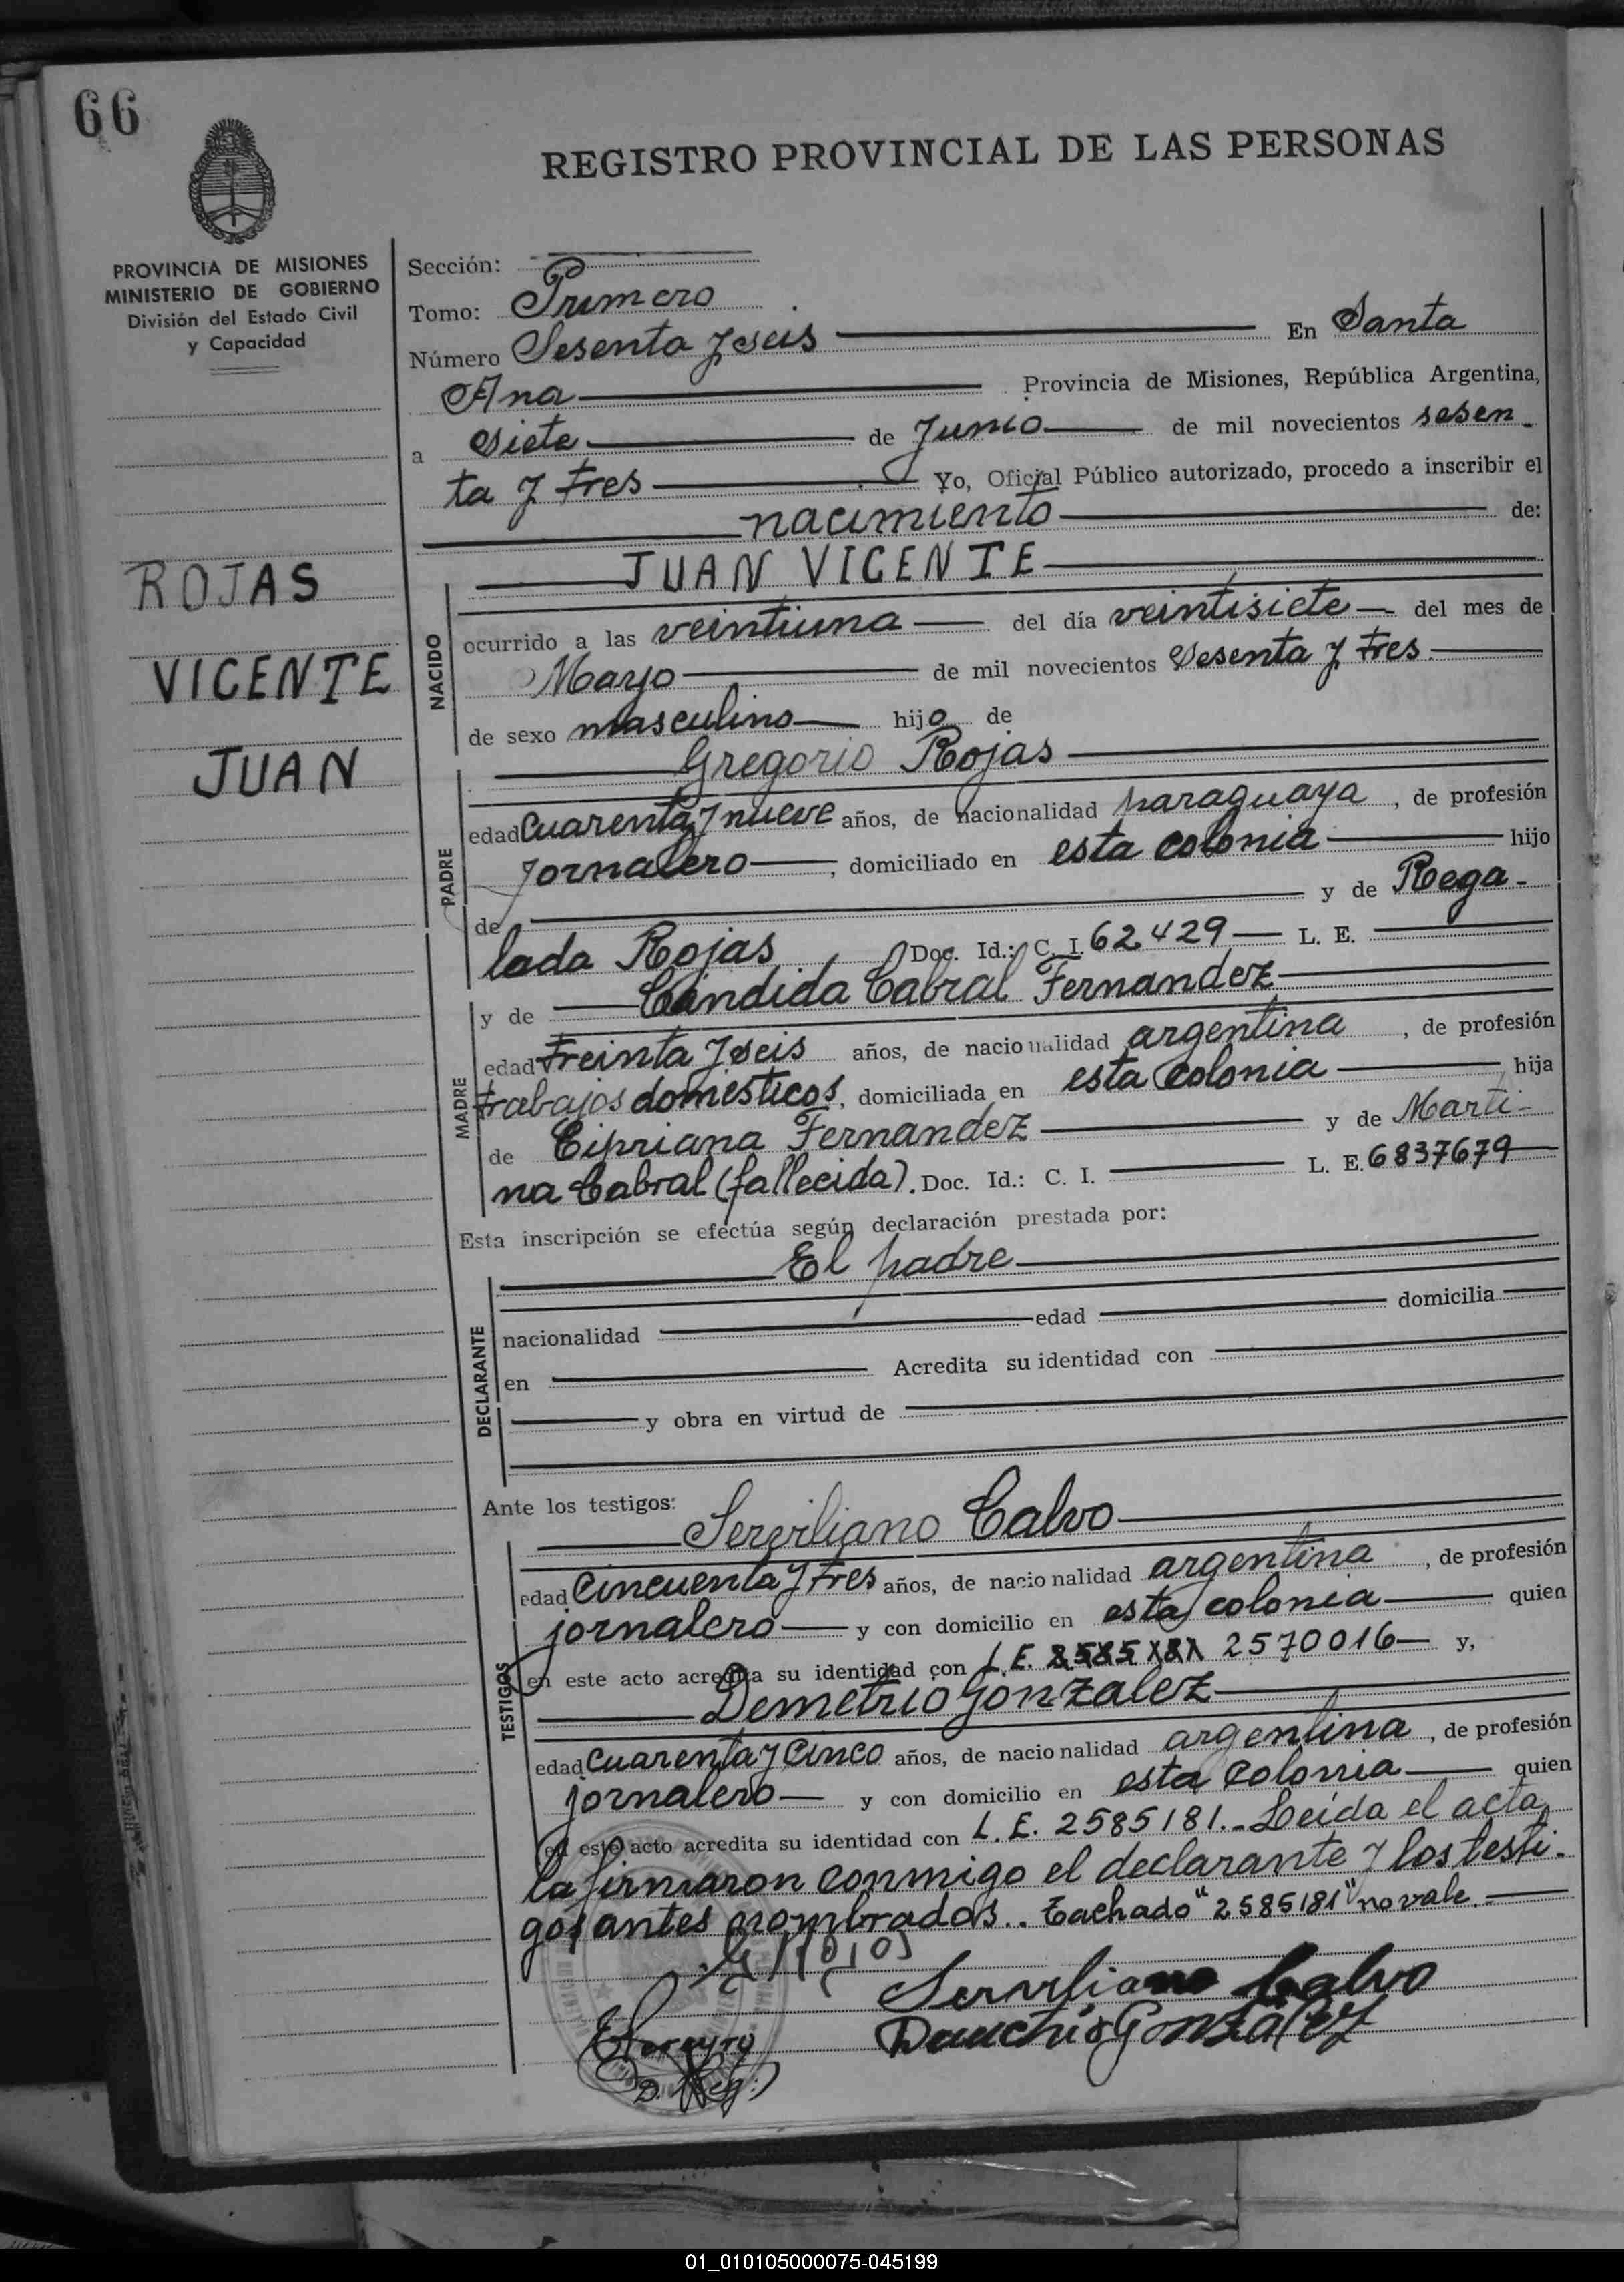 66
REGISTRO PROVINCIAL DE LAS PERSONAS
PROVINCIA DE MISIONES
MINISTERIO DE GOBIERNO
División del Estado Civil
y Capacidad
ROJAS
VICENTE
JUAN
Sección:
Tomo: Primero
Número Sesenta y seis En Santa
Ana Provincia de Misiones, República Argentina,
a siete de Junio de mil novecientos sesen-
ta y tres Yo, Oficial Público autorizado, procedo a inscribir el
nacimiento de:
JUAN VICENTE
NACIDO
ocurrido a las veintiuna del día veintisiete del mes de
Mayo de mil novecientos Sesenta y tres.
de sexo masculino hijo de
Gregorio Rojas
PADRE
edad cuarenta y nueve años, de nacionalidad paraguaya, de profesión
jornalero, domiciliado en esta colonia hijo
de y de Rega-
lada Rojas Doc. Id.: C. I. 62.429 L. E.
y de Candida Cabral Fernandez
MADRE
edad treinta y seis años, de nacionalidad argentina, de profesión
trabajos domésticos, domiciliada en esta colonia hija
de Cipriana Fernandez y de Marti-
na Cabral (fallecida). Doc. Id.: C. I. L. E. 6837679
Esta inscripción se efectúa según declaración prestada por:
El padre
DECLARANTE
nacionalidad edad domicilia
en Acredita su identidad con
y obra en virtud de
Ante los testigos:
Serviliano Calvo
TESTIGOS
edad cincuenta y tres años, de nacionalidad argentina, de profesión
jornalero y con domicilio en esta colonia quien
en este acto acredita su identidad con L.E. 2585181 2570016 y,
Demetrio Gonzalez
edad cuarenta y cinco años, de nacionalidad argentina, de profesión
jornalero y con domicilio en esta colonia quien
en este acto acredita su identidad con L.E. 2585181.- Leída el acta
la firmaron conmigo el declarante y los testi-
gos antes nombrados.. Tachado "2585181" no vale.
Serviliano Calvo
Gonzalez
01_010105000075-045199